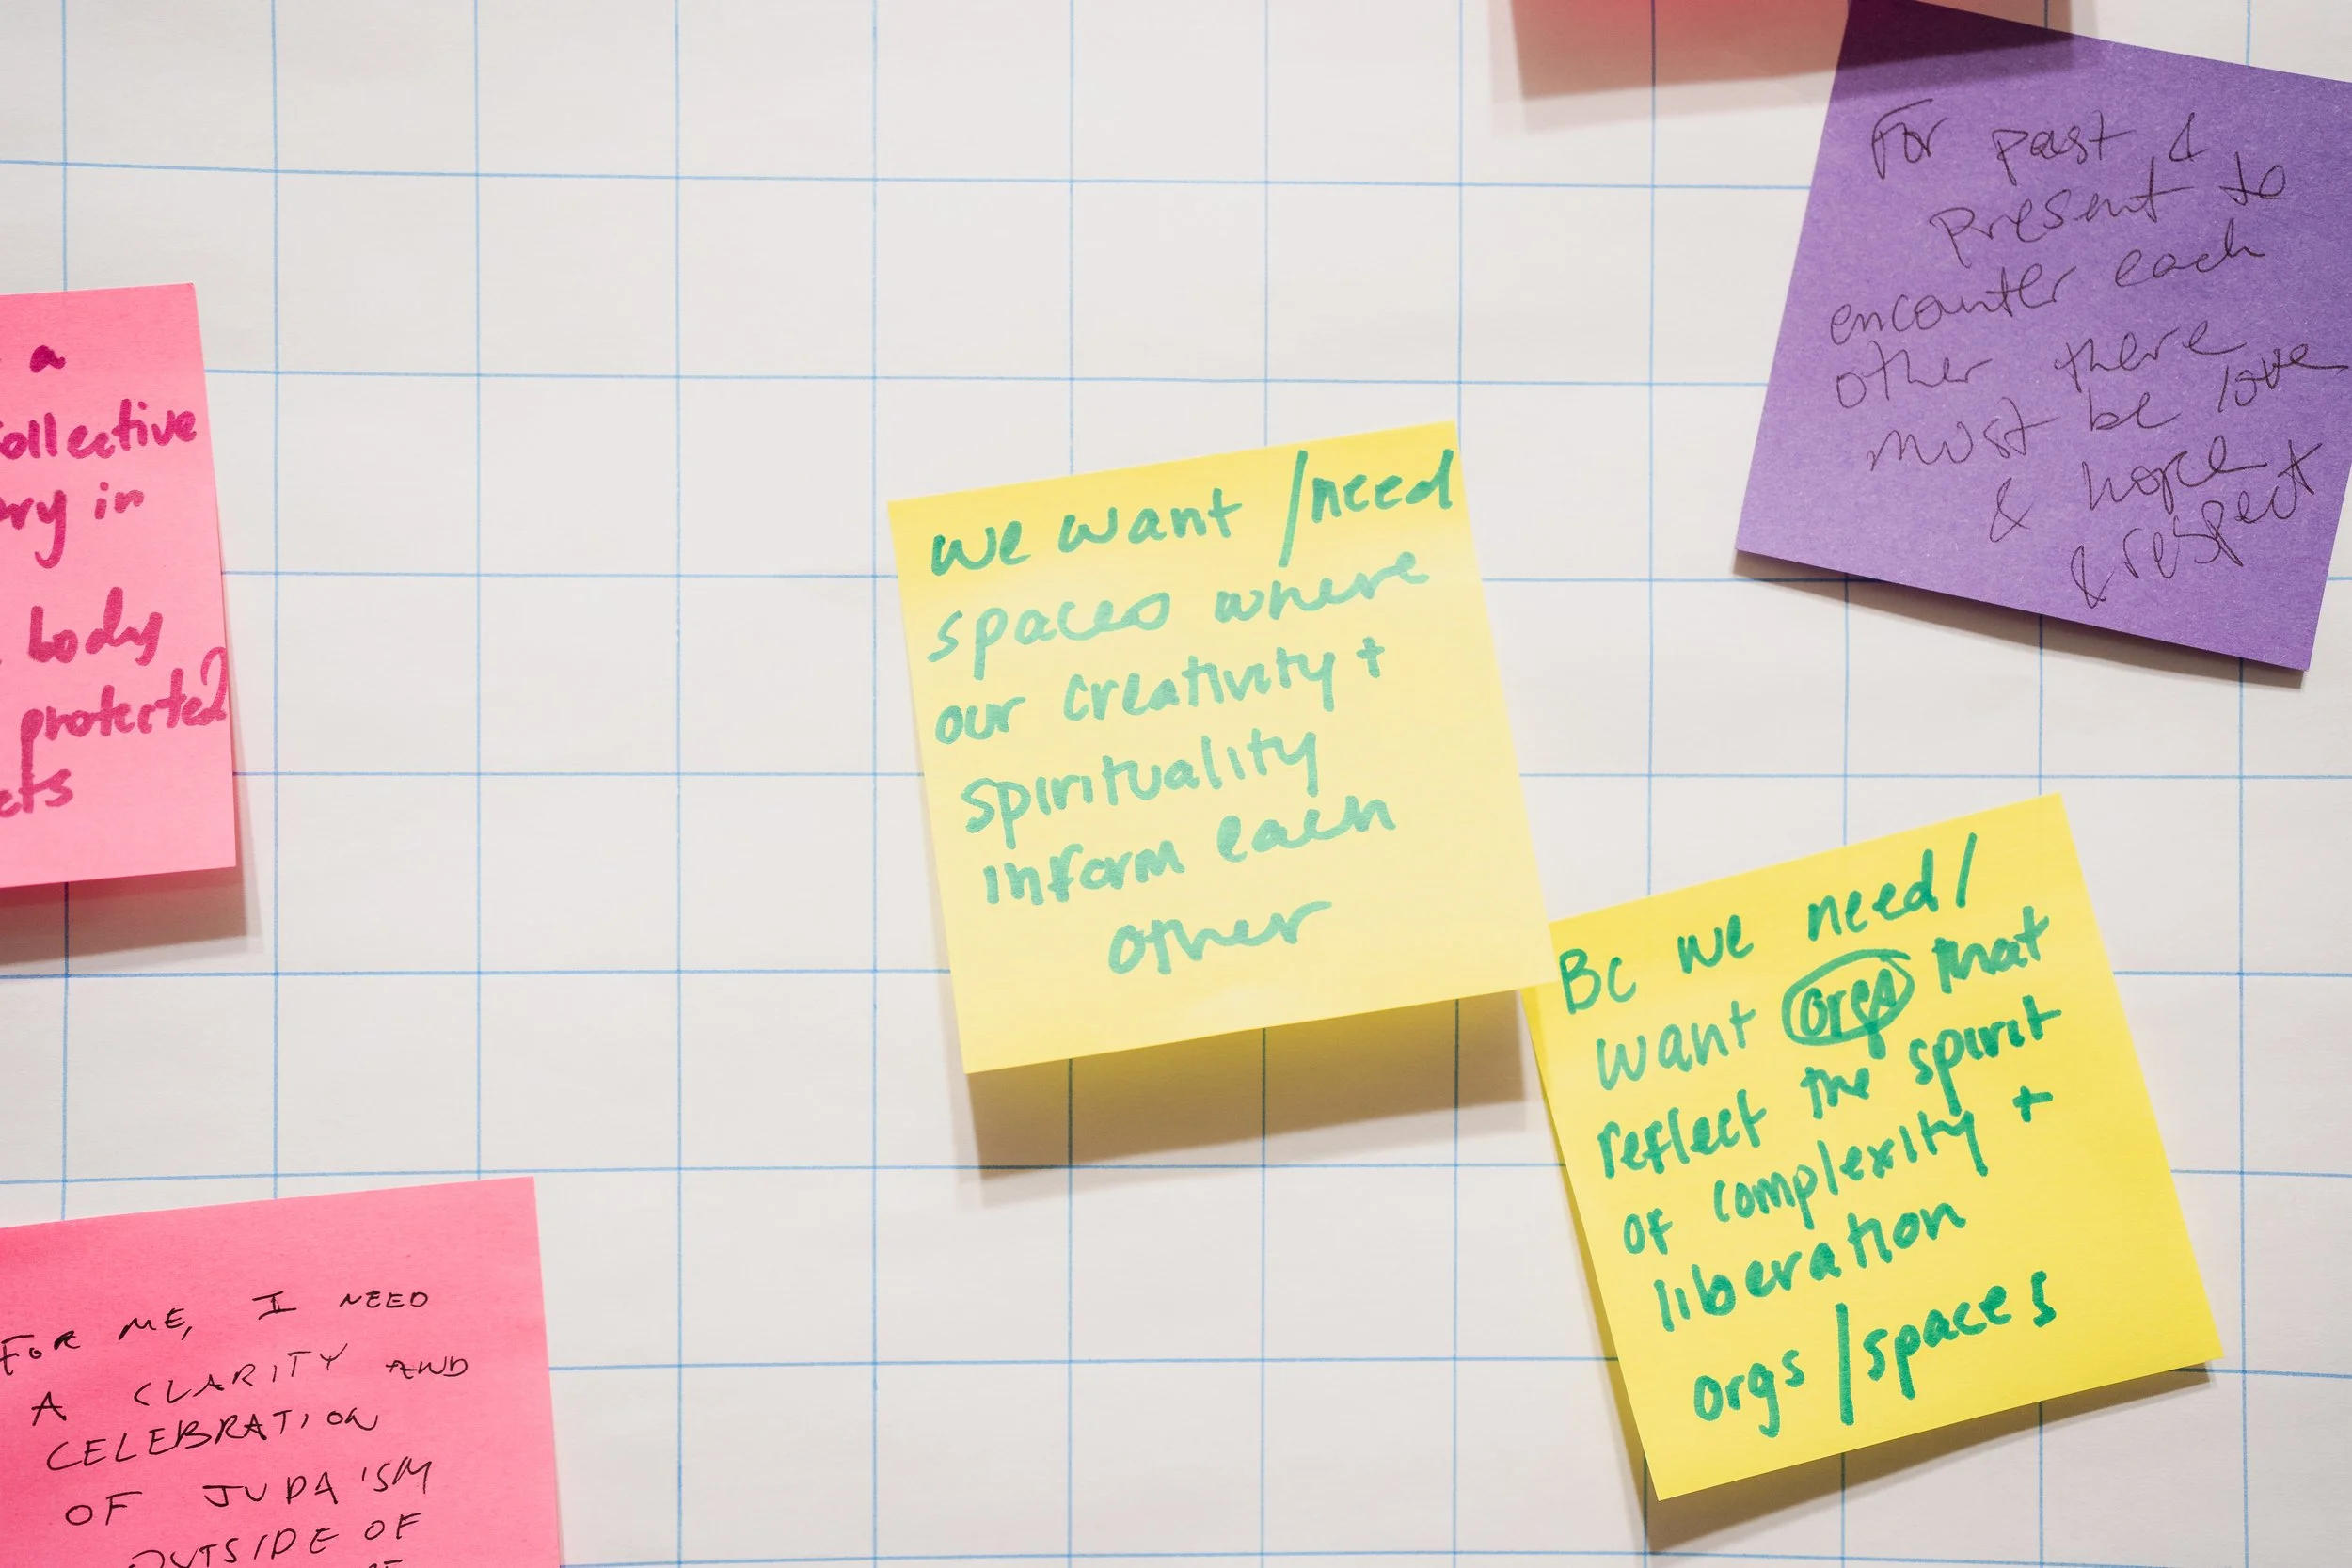 a
ollective
ry in
body
protected?
ets
For past &
present to
encounter each
other there
must be love
& hope
& respect
we want /need
spaces where
our creativity +
spirituality
inform each
other
Bc we need/
want orgs that
reflect the spirit
of complexity +
liberation
orgs/spaces
FOR ME, I NEED
A CLARITY AND
CELEBRATION
OF JUDAISM
OUTSIDE OF